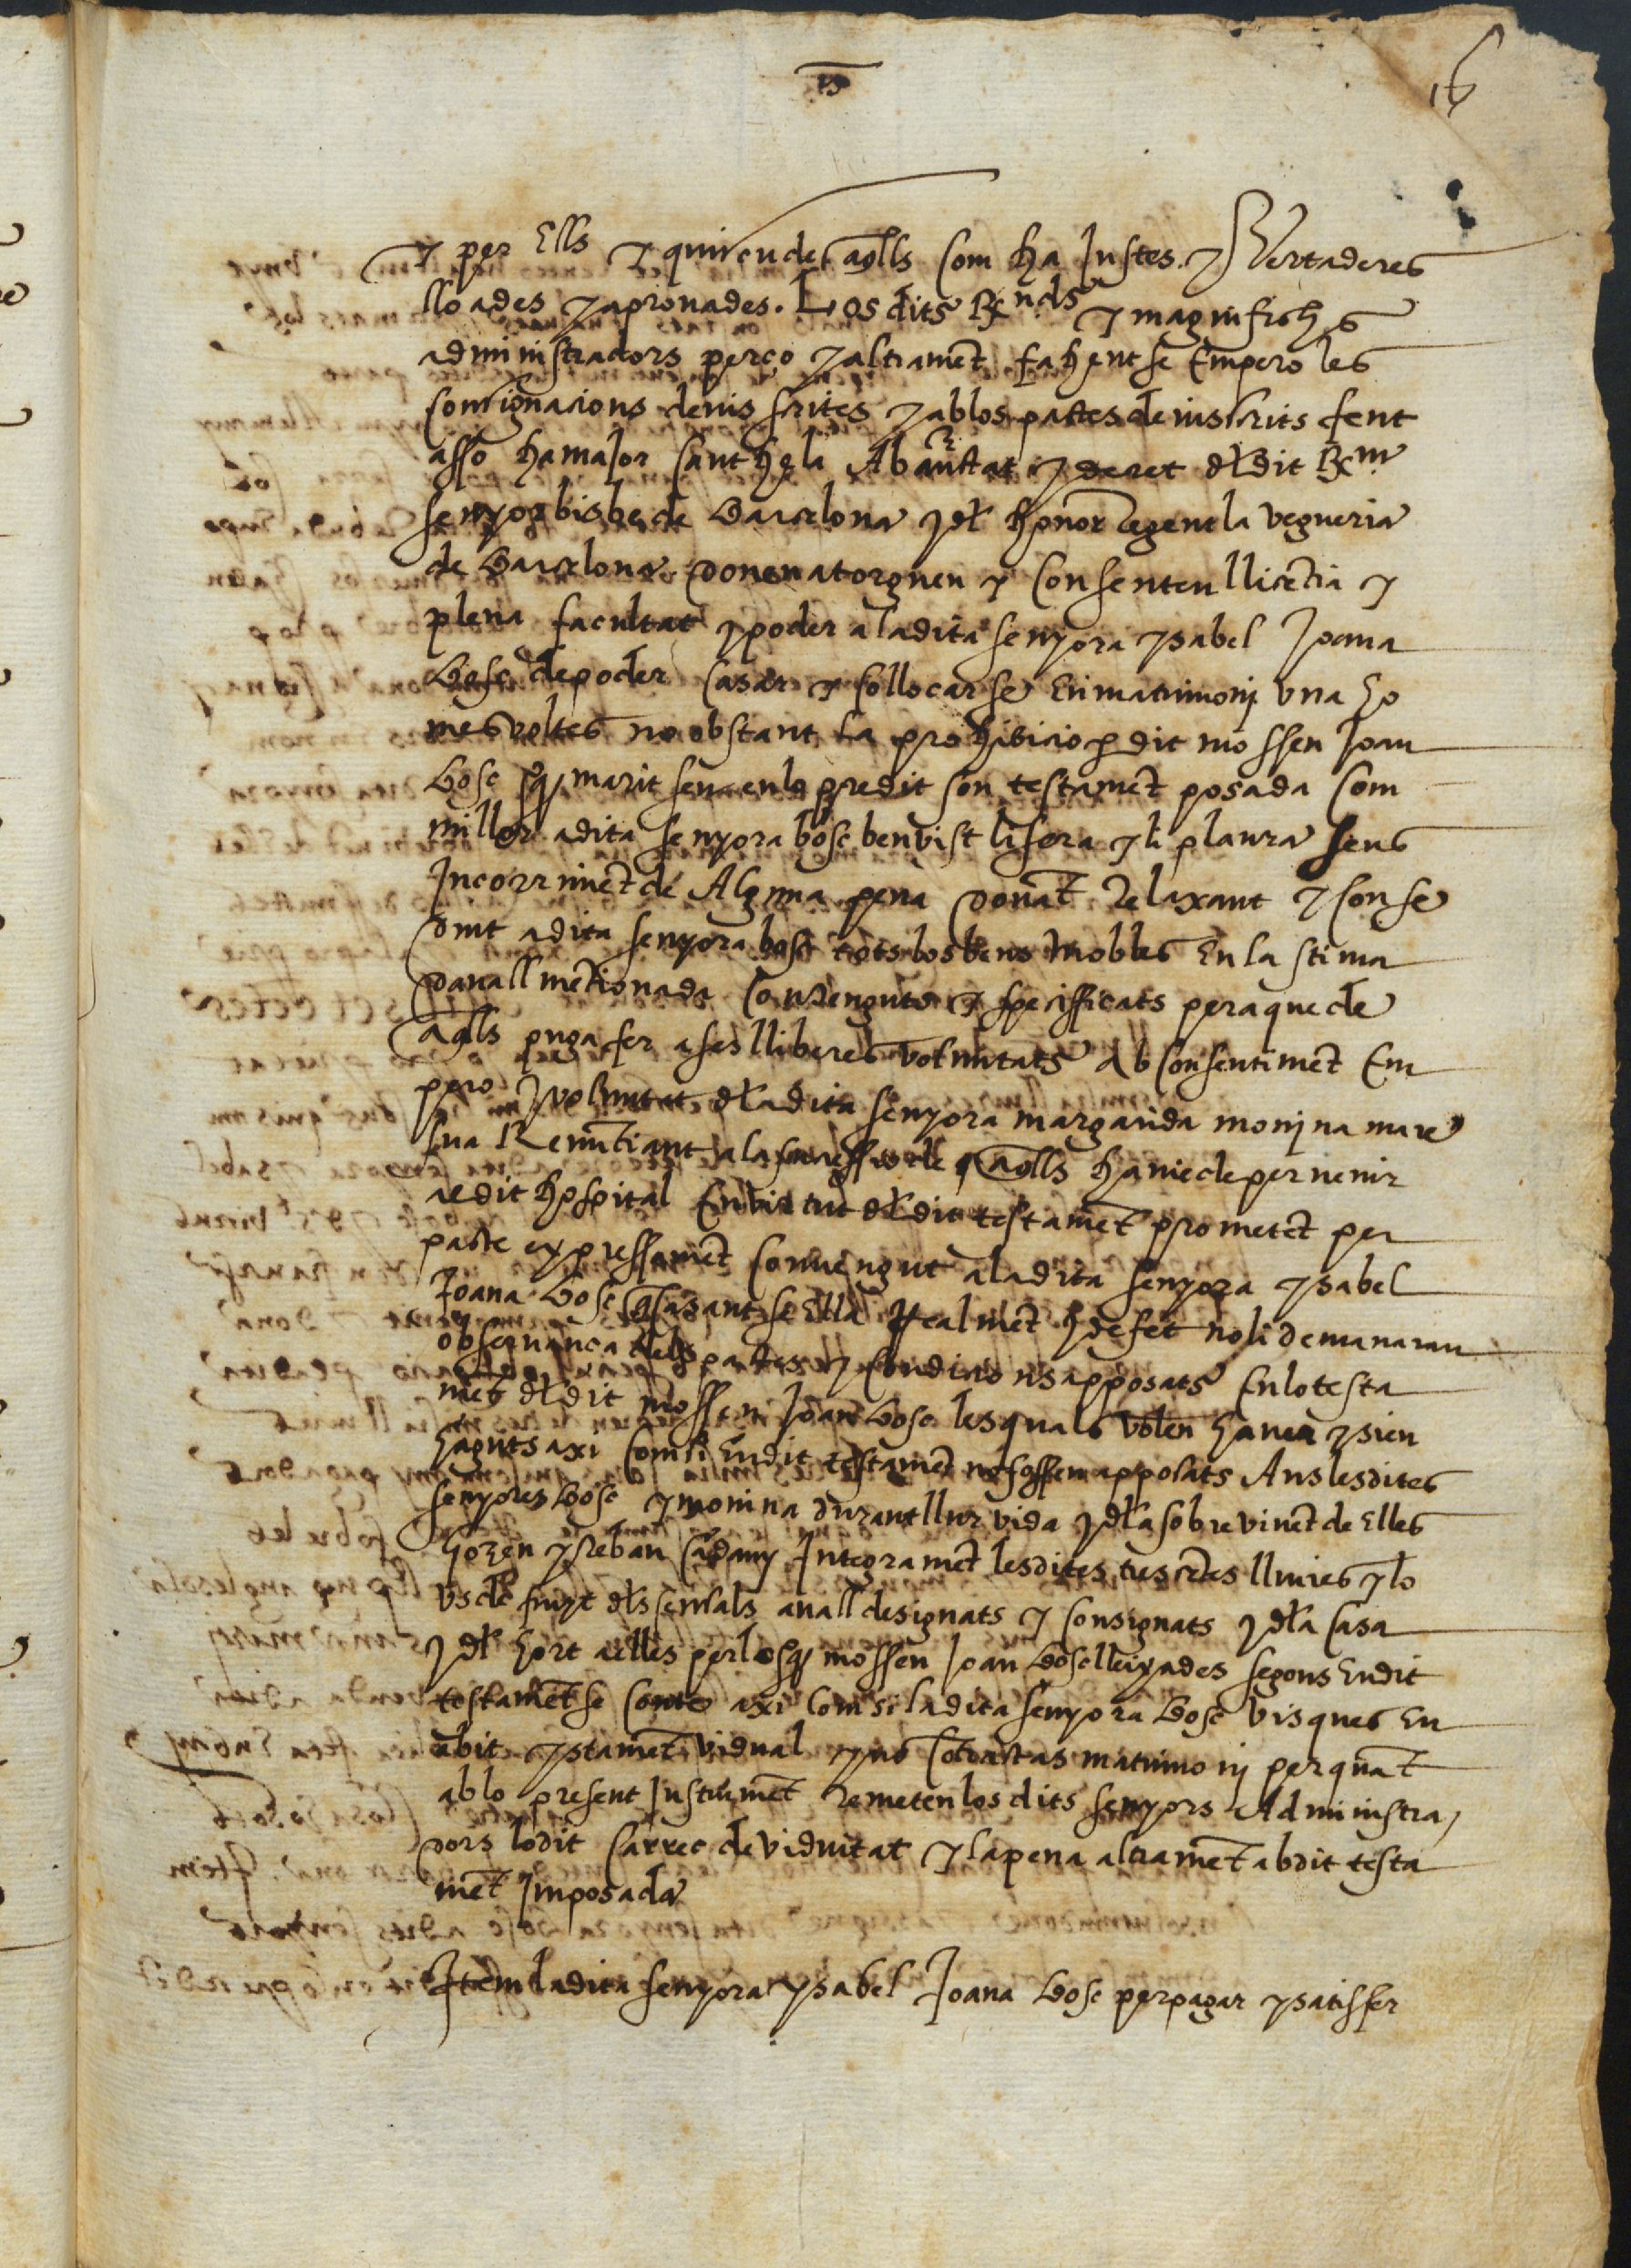 16
y per Ells y quiscu de aqlls com ha Justes y Vertaderes
lloades y aprouades. Los dits Rnds y magnifichs
administradors perço y altrament fahentse Empero les
consignacions deius scrites y ab los pactes deiuscrits fent
asso ha major cauthela Ab auctat y decret dl dit Rm
senyor bisbe de Barcelona y dl honor Regent la vegueria
de Barcelona donen atorguen y Consenten llicentia y
plena facultat y poder a la dita senyora ysabel Joana
Bosc de poder Casar y collocarse En matrimoni vna ho
mes voltes no obstant la prohibicio p dit mossen Joan
Bosc qº marit seu en lo predit son testament posada Com
millor a dita senyora bosc ben vist li sera y li plaura sens
Incorriment de Alguna pena donat Relaxant y conse
dint a dita senyora bosc tots los bens mobles En la stima
dauall mentionada Contenguts y specifficats pera que de
aqlls puga fer a ses lliberes voluntats Ab consentiment Em
pero y voluntat dla dita senyora margarida monina mare
sua Renuntiant a la successio de qaqlls hauie de peruenir
a dit hospital En virtut dl dit testament prometent per
pacte expressament conuengut a la dita senyora ysabel
Joana Bosc q casantse Ella Realment y de fet no li demanaran
obseruança dels pactes y Condicions apposats En lo testa
ment dl dit mossen Joan Bosc les quals volen hauer y sien
haguts axi com si En dit testament no fossen apposats Ans les dites
senyores Bosc y monina durant llur vida y dla sobreviuent de Elles
gozen y reban cadany Integrament les dites trescentes lliures y lo
vsdefruyt dls censals auall designats y consignats y dla casa
y dl hort a elles per lo qº mossen Joan Bosc lleixades segons En dit
testament se conte axi com si la dita senyora Bosc visques En
abit y stament vidual y no contractas matrimonj per quant
ab lo present Instrument Remeten los dits senyors Administra
dors lo dit carrec de viduitat y la pena altrament ab dit testa
ment Imposada
Item la dita senyora ysabel Joana Bosc per pagar y satisfer